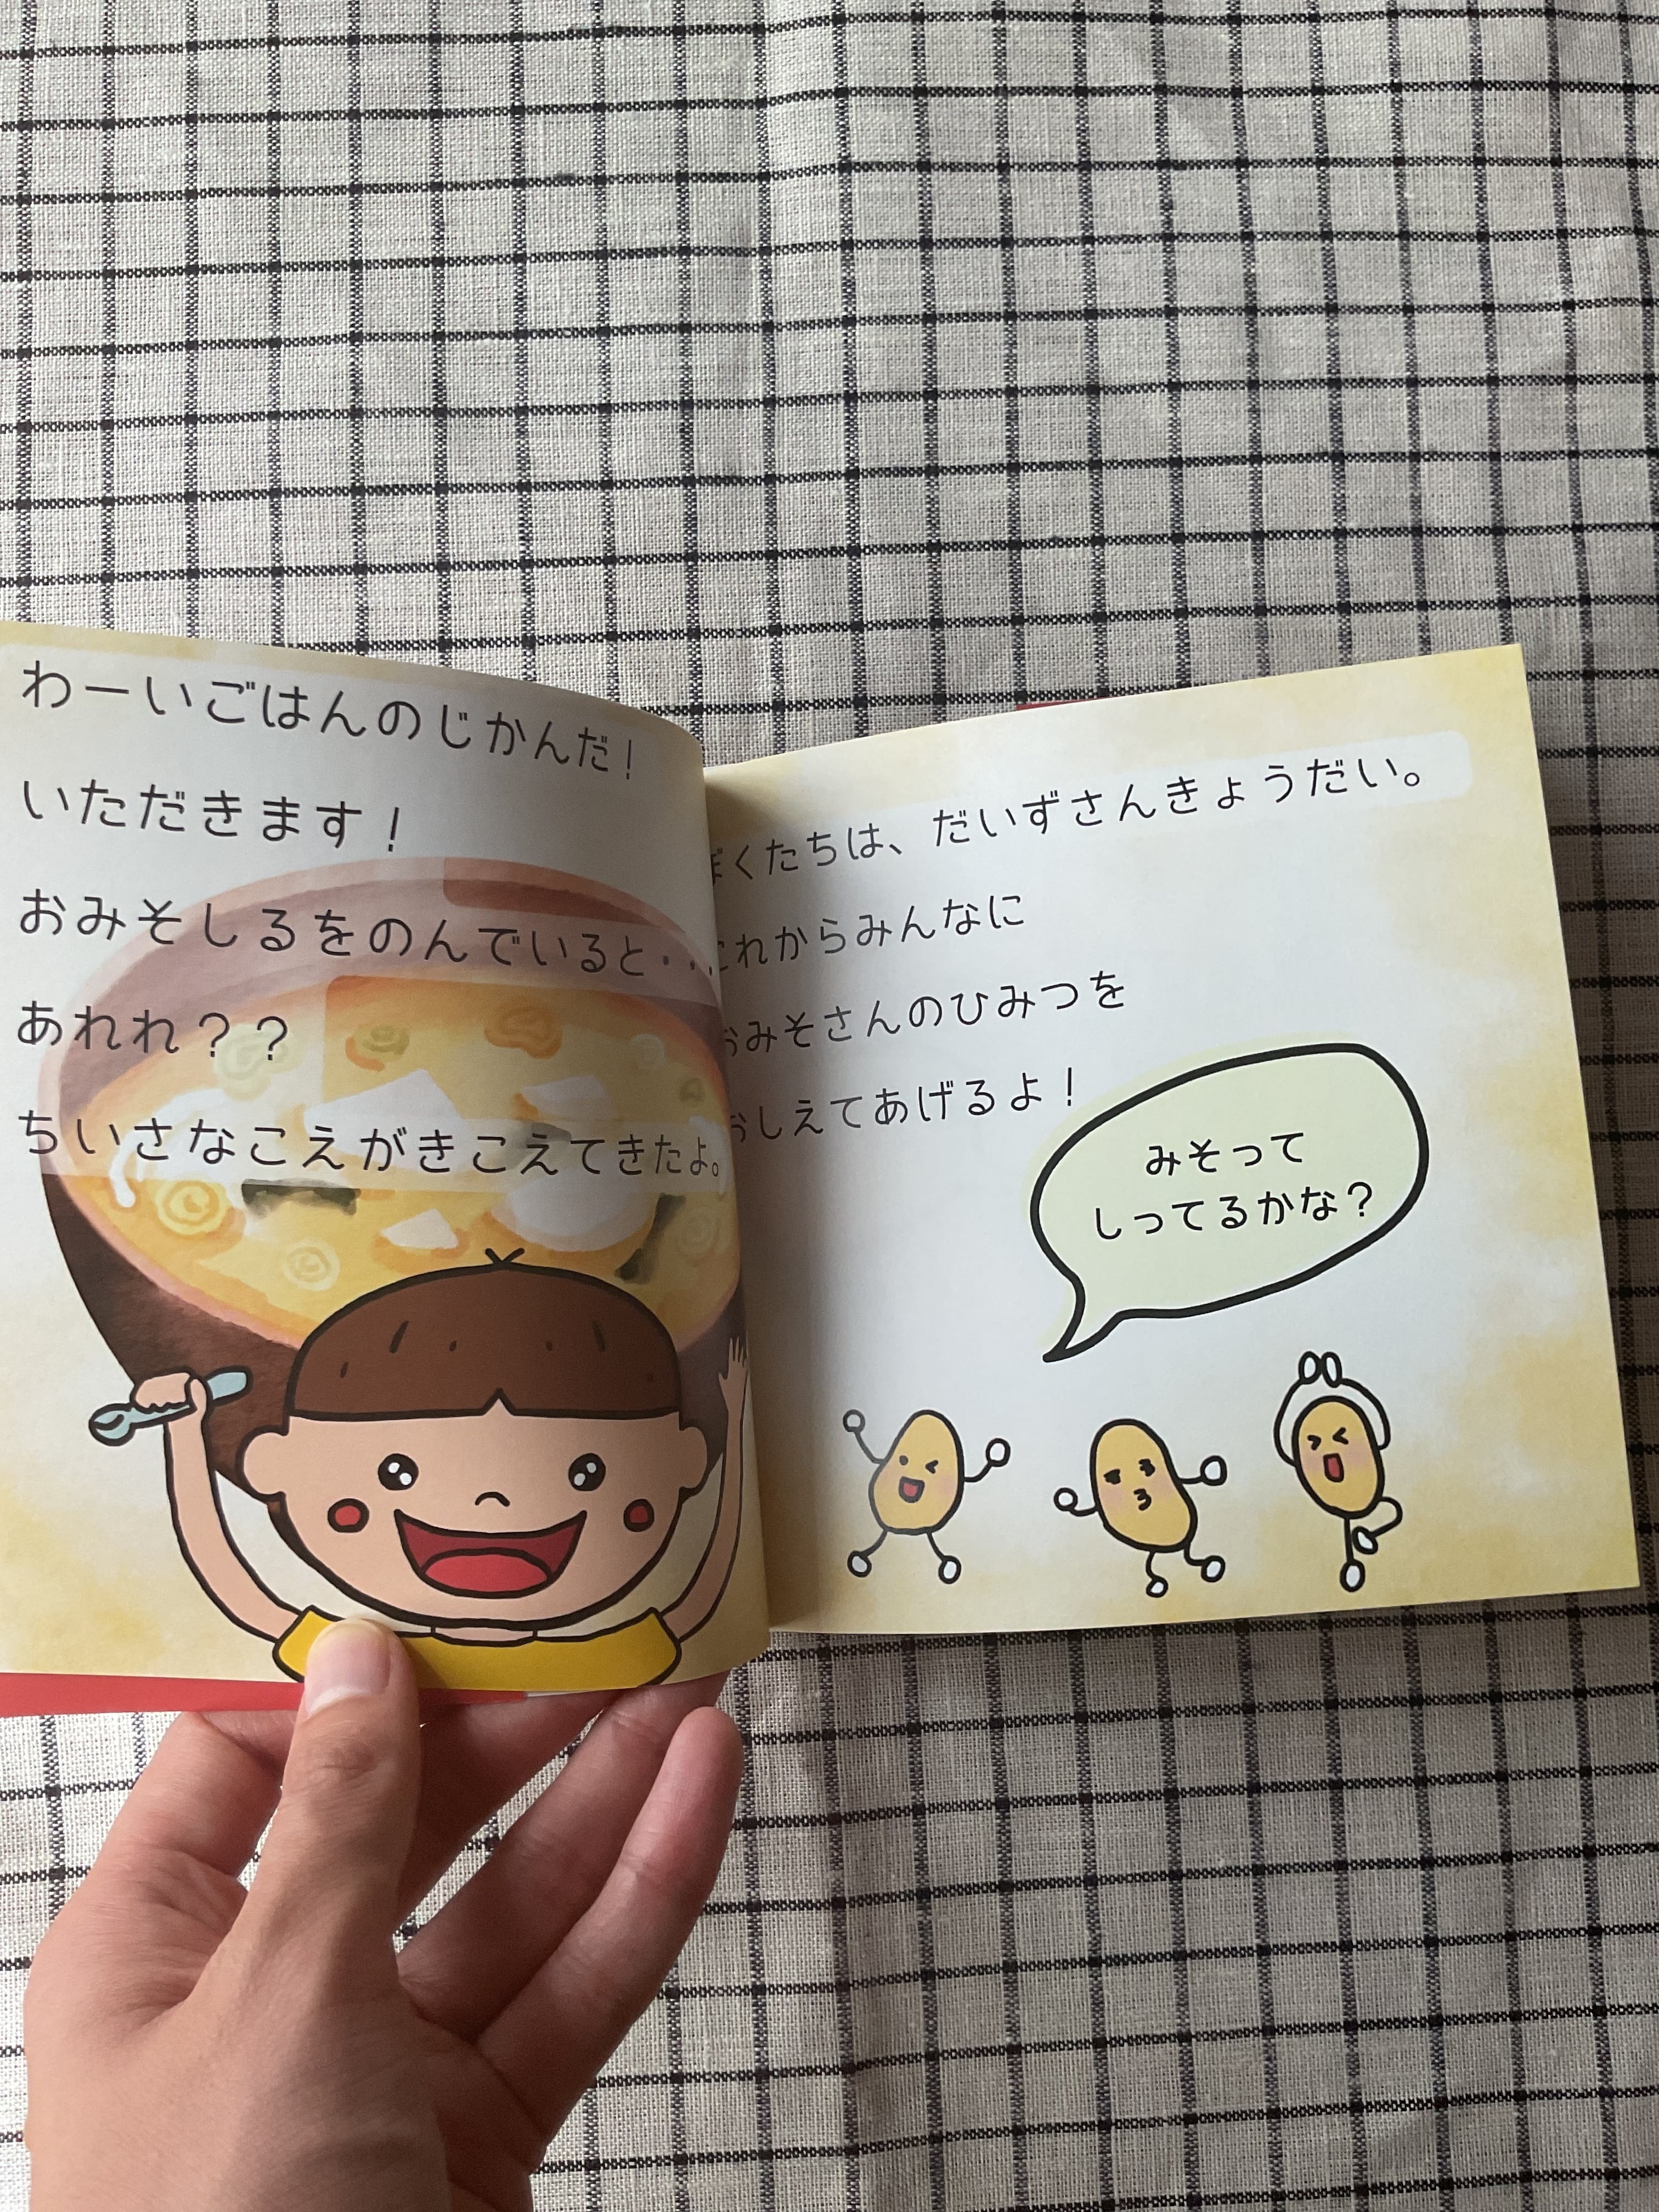 わーいごはんのじかんだ！
いただきます！
おみそしるをのんでいると・・・
あれれ？？
ちいさなこえがきこえてきたよ。
ぼくたちは、だいずさんきょうだい。
これからみんなに
おみそさんのひみつを
おしえてあげるよ！
みそって
しってるかな？